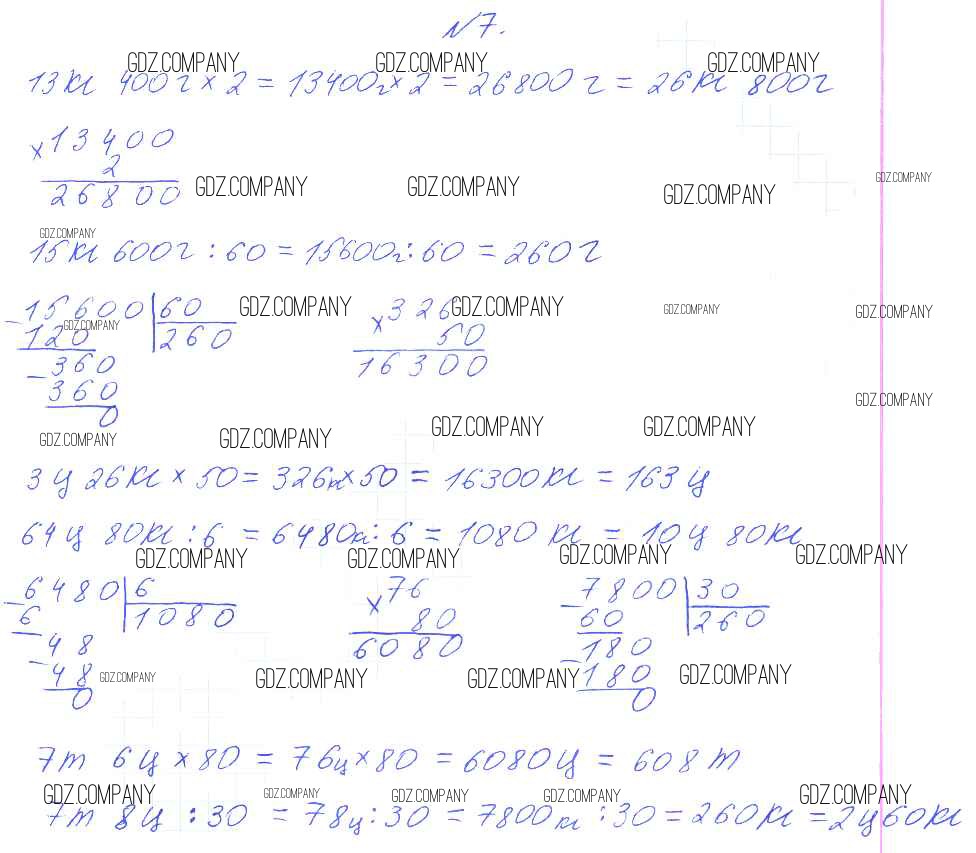 №7.
GDZ.COMPANY GDZ.COMPANY GDZ.COMPANY
13кг 400г × 2 = 13400г × 2 = 26800 г = 26кг 800г
× 13400
2
26800
GDZ.COMPANY GDZ.COMPANY GDZ.COMPANY GDZ.COMPANY
GDZ.COMPANY
15кг 600г : 60 = 15600г : 60 = 260г
GDZ.COMPANY GDZ.COMPANY GDZ.COMPANY GDZ.COMPANY
- 15600 | 60
120 260
- 360
360
0
× 326
50
16300
GDZ.COMPANY
GDZ.COMPANY
GDZ.COMPANY GDZ.COMPANY GDZ.COMPANY GDZ.COMPANY
3 ц 26кг × 50 = 326кг × 50 = 16300кг = 163 ц
64 ц 80кг : 6 = 6480кг : 6 = 1080 кг = 10 ц 80кг
GDZ.COMPANY GDZ.COMPANY GDZ.COMPANY GDZ.COMPANY
- 6480 | 6
6 1080
- 48
48
0
× 76
80
6080
- 7800 | 30
60 260
- 180
180
0
GDZ.COMPANY GDZ.COMPANY GDZ.COMPANY GDZ.COMPANY
7т 6ц × 80 = 76ц × 80 = 6080ц = 608 т
GDZ.COMPANY GDZ.COMPANY GDZ.COMPANY GDZ.COMPANY GDZ.COMPANY
7т 8ц : 30 = 78ц : 30 = 7800кг : 30 = 260кг = 2ц60кг